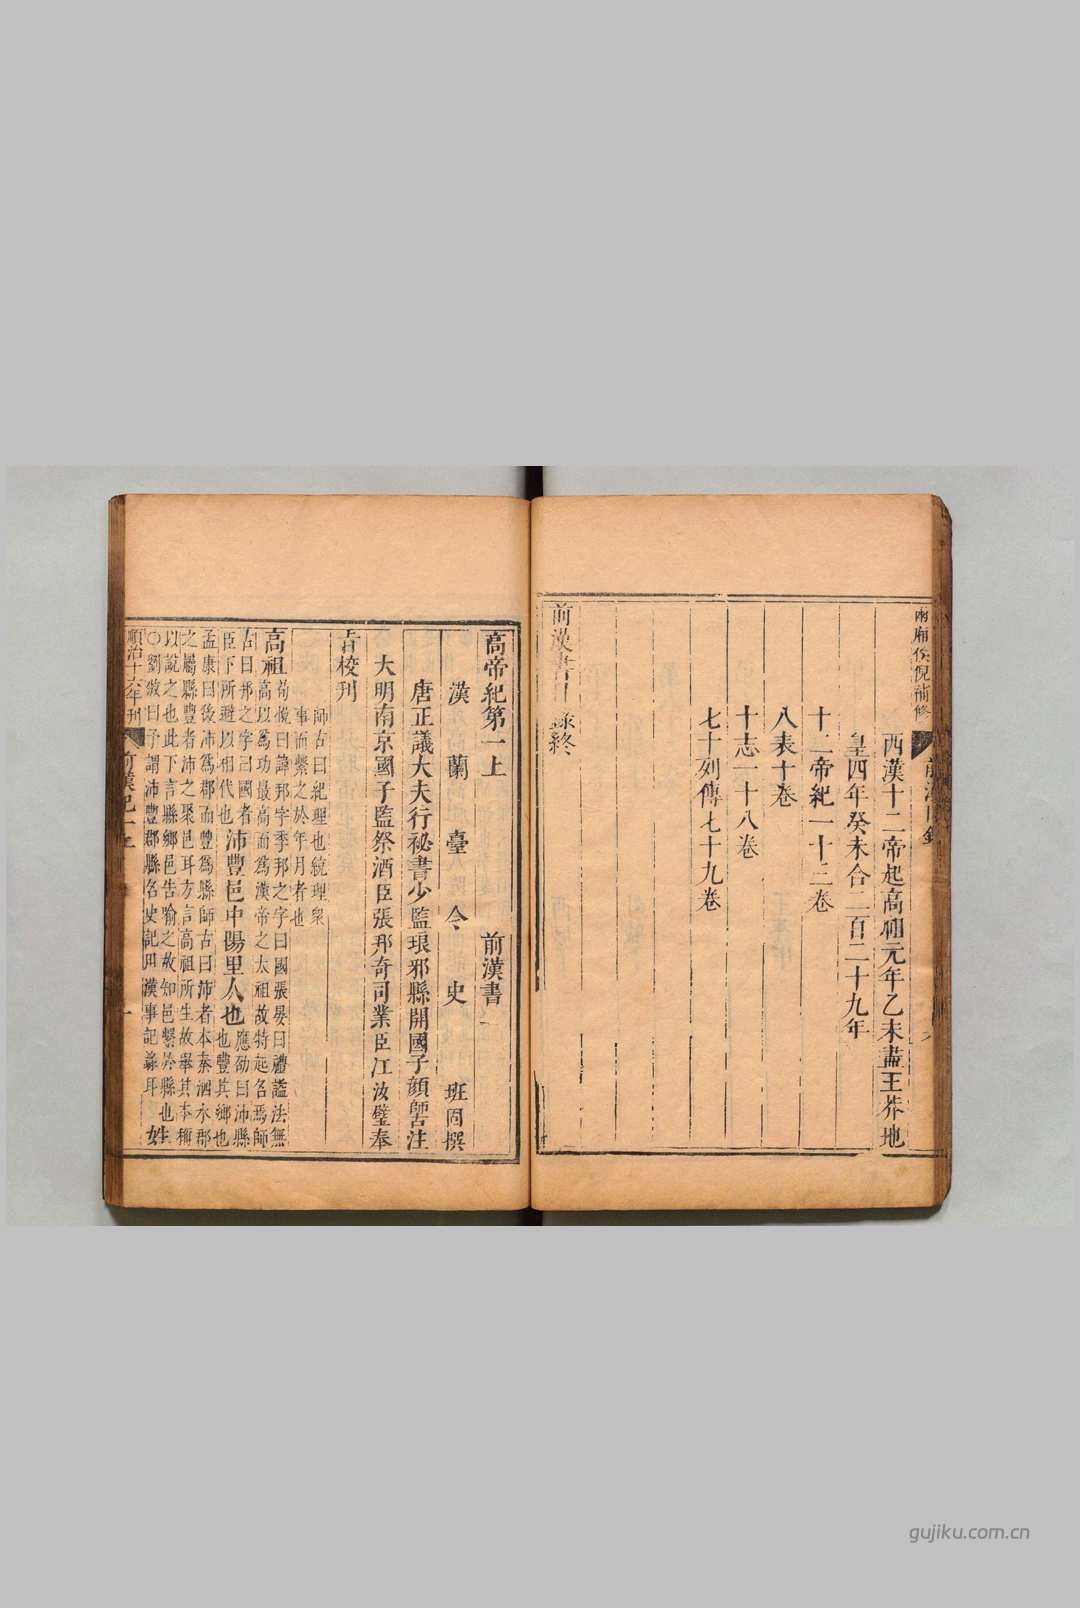 兩廂俟倪補修
前漢目錄
西漢十二帝起高祖元年乙未盡王莽地
皇四年癸未合二百二十九年
十二帝紀一十三卷
八表十卷
十志一十八卷
七十列傳七十九卷
前漢書目錄終
高帝紀第一上 前漢書一
漢蘭臺令史 班固撰
唐正議大夫行祕書少監琅邪縣開國子顏師古注
大明南京國子監祭酒臣張邦奇司業臣江汝璧奉
旨校刊
師古曰紀理也統理眾
事而繫之於年月者也
高祖荀悅曰諱邦字季邦之字曰國張晏曰禮謚法無
高以爲功最高而爲漢帝之太祖故特起名焉師
古曰邦之字曰國者
臣下所避以相代也沛豐邑中陽里人也應劭曰沛縣
也豐其鄉也
孟康曰後沛爲郡而豐爲縣師古曰沛者本秦泗水郡
之屬縣豐者沛之聚邑耳方言高祖所生故舉其本稱
以說之也此下言縣鄉邑告喻之故知邑繫於縣也
○劉攽曰予謂沛豐郡縣名史記用漢事記錄耳姓
順治十六年刊
前漢紀一上
一
gujiku.com.cn